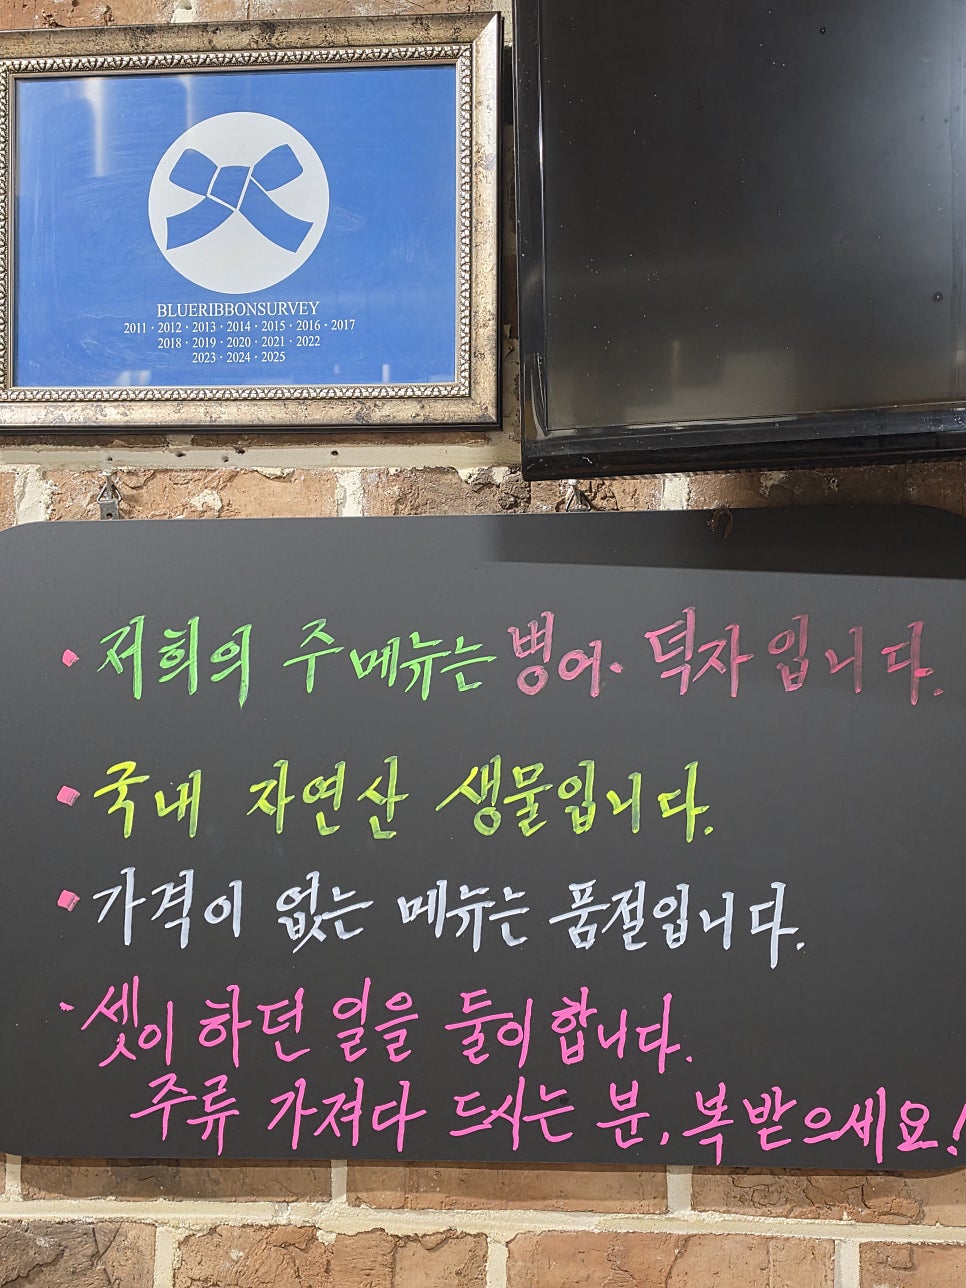 BLUERIBBONSURVEY
2011 · 2012 · 2013 · 2014 · 2015 · 2016 · 2017
2018 · 2019 · 2020 · 2021 · 2022
2023 · 2024 · 2025
· 저희의 주 메뉴는 병어· 덕자입니다.
· 국내 자연산 생물입니다.
· 가격이 없는 메뉴는 품절입니다.
· 셋이 하던 일을 둘이 합니다.
주류 가져다 드시는 분, 복 받으세요!